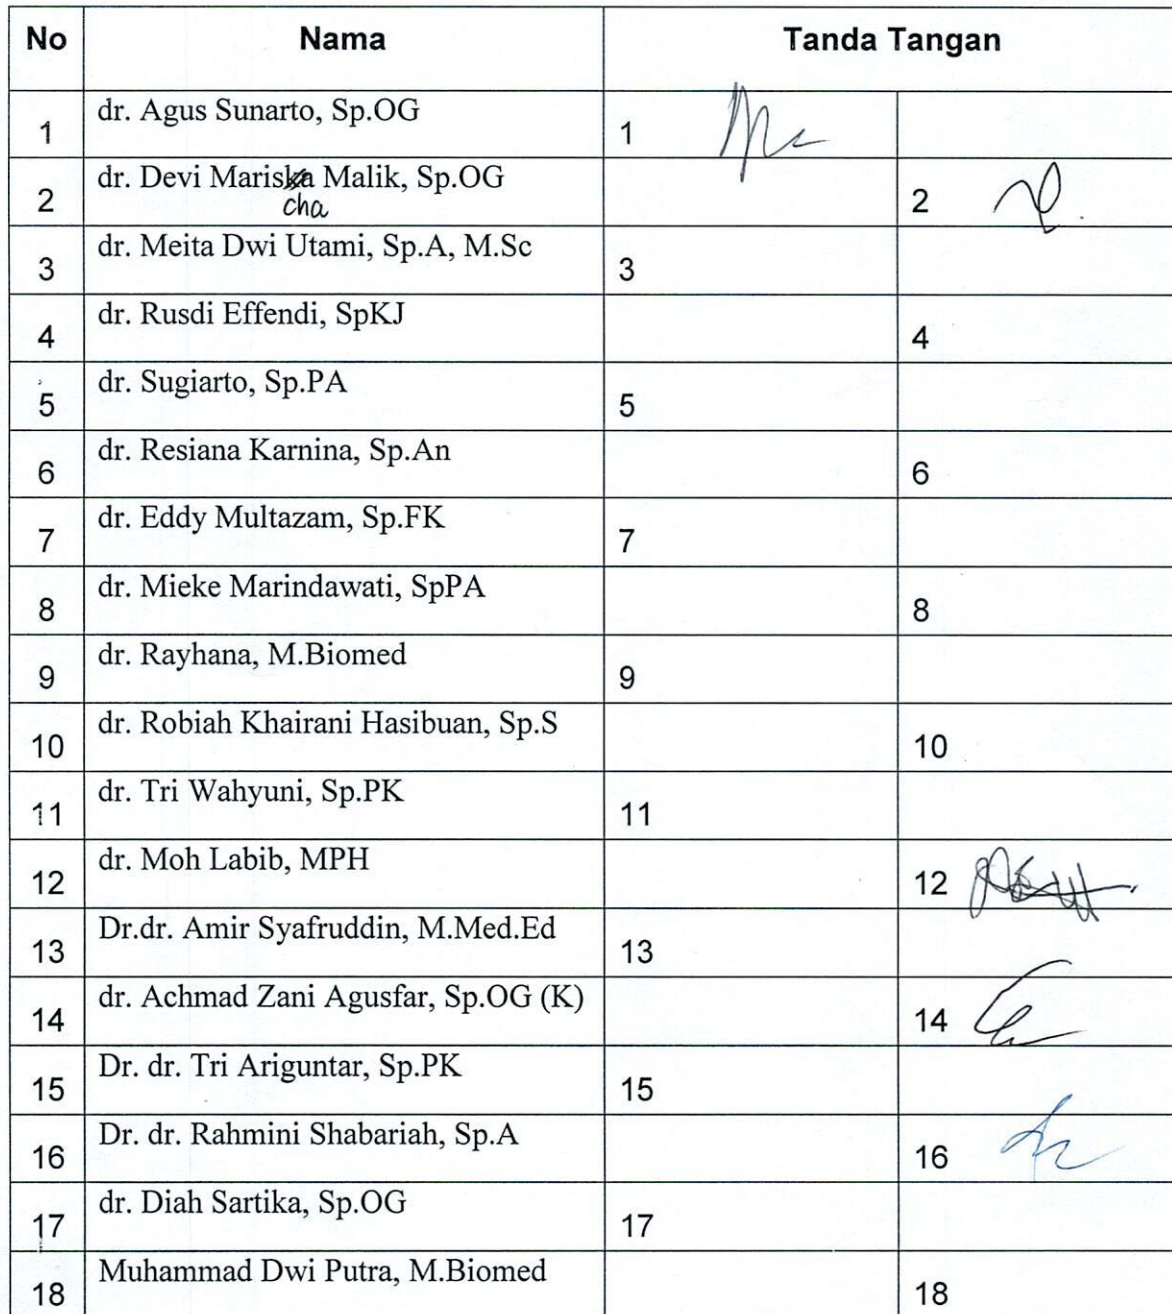 No Nama Tanda Tangan
1 dr. Agus Sunarto, Sp.OG 1
2 dr. Devi Mariska Malik, Sp.OG 2
cha
3 dr. Meita Dwi Utami, Sp.A, M.Sc 3
4 dr. Rusdi Effendi, SpKJ 4
5 dr. Sugiarto, Sp.PA 5
6 dr. Resiana Karnina, Sp.An 6
7 dr. Eddy Multazam, Sp.FK 7
8 dr. Mieke Marindawati, SpPA 8
9 dr. Rayhana, M.Biomed 9
10 dr. Robiah Khairani Hasibuan, Sp.S 10
11 dr. Tri Wahyuni, Sp.PK 11
12 dr. Moh Labib, MPH 12
13 Dr.dr. Amir Syafruddin, M.Med.Ed 13
14 dr. Achmad Zani Agusfar, Sp.OG (K) 14
15 Dr. dr. Tri Ariguntar, Sp.PK 15
16 Dr. dr. Rahmini Shabariah, Sp.A 16
17 dr. Diah Sartika, Sp.OG 17
18 Muhammad Dwi Putra, M.Biomed 18